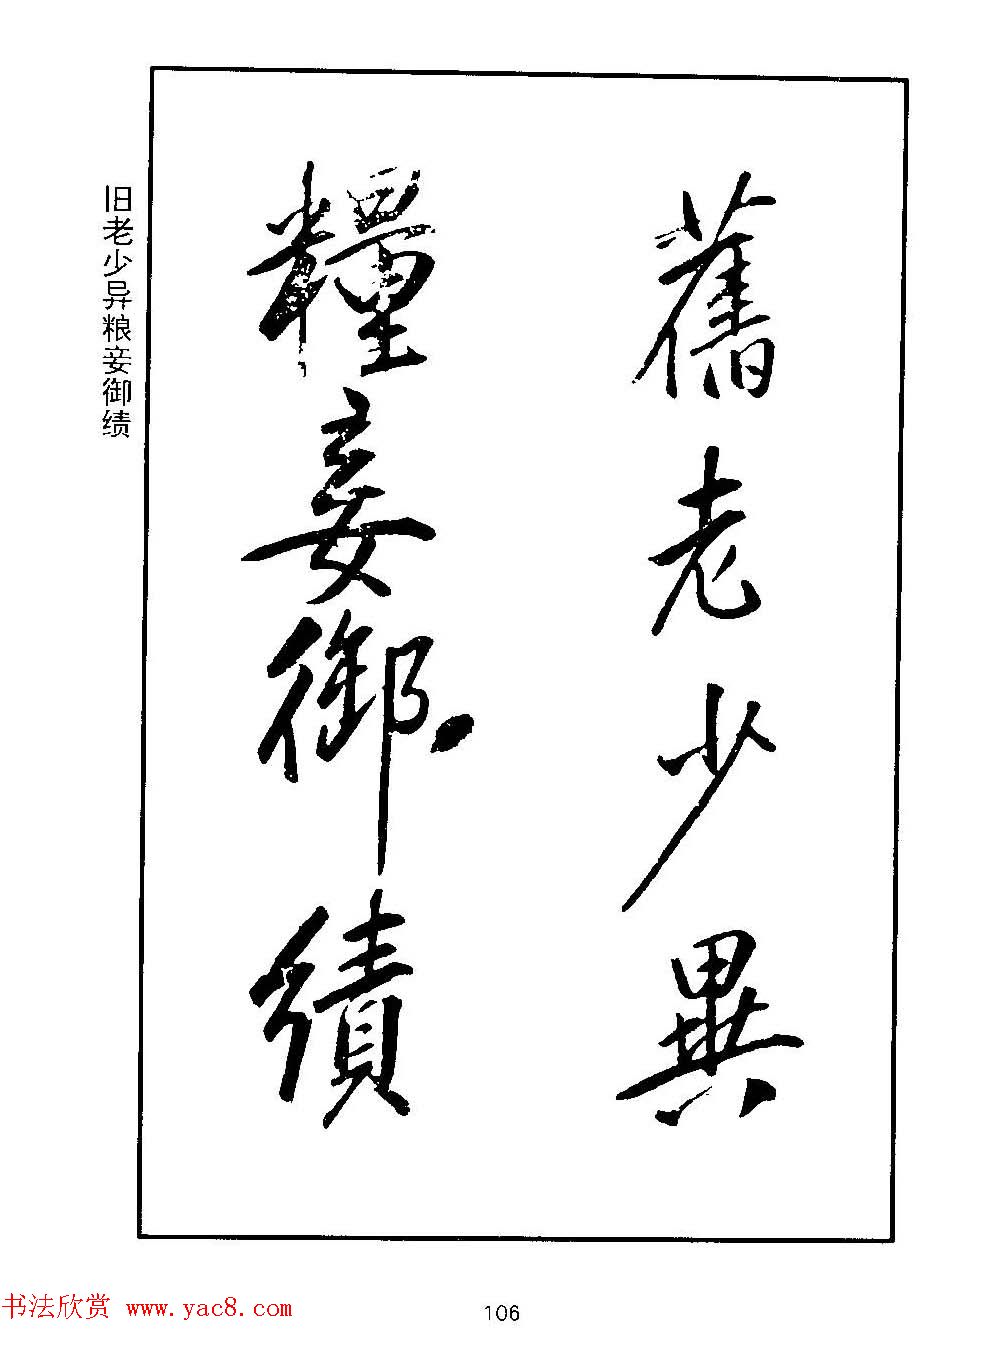 舊老少異
糧妾御績
旧老少异粮妾御绩
书法欣赏 www.yac8.com
106